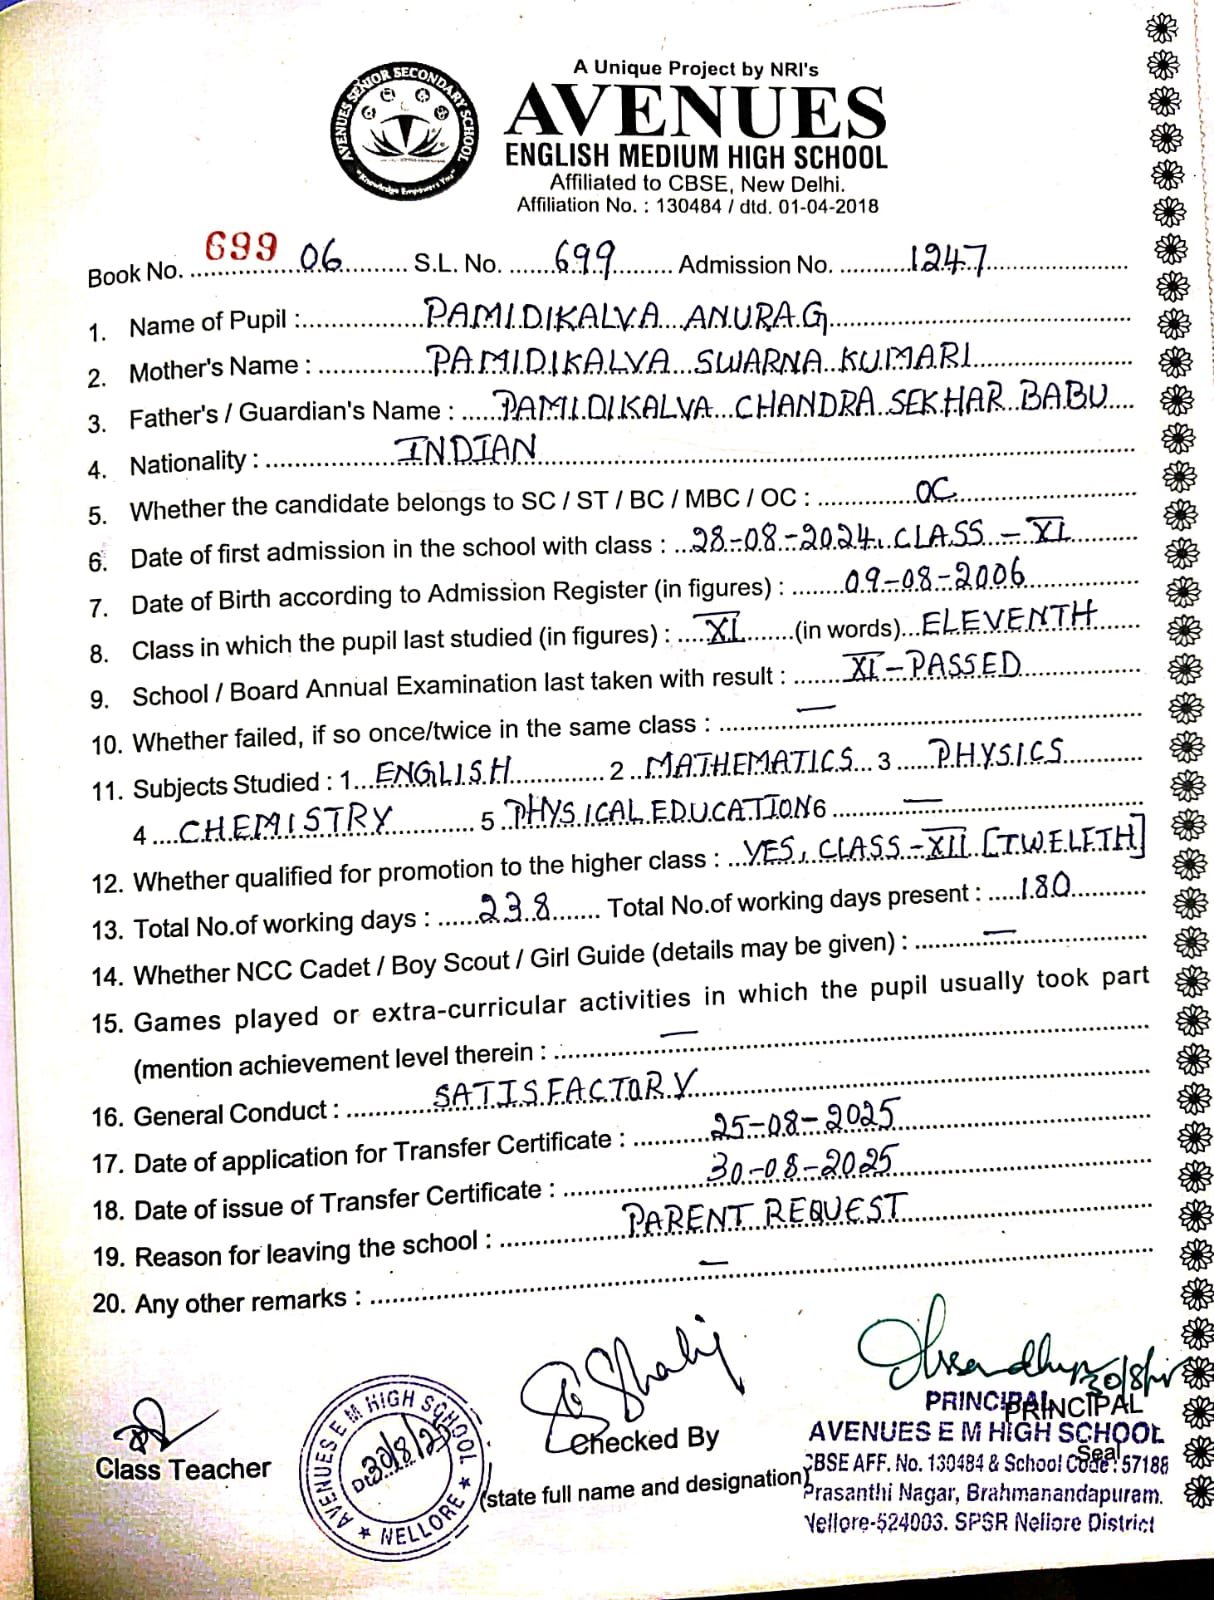 AVENUES SENIOR SECONDARY SCHOOL
"Knowledge Empowers You"
A Unique Project by NRI's
AVENUES
ENGLISH MEDIUM HIGH SCHOOL
Affiliated to CBSE, New Delhi.
Affiliation No. : 130484 / dtd. 01-04-2018
Book No. 699 06 S.L. No. 699 Admission No. 1247
1. Name of Pupil : PAMIDIKALVA ANURAG
2. Mother's Name : PAMIDIKALVA SWARNA KUMARI
3. Father's / Guardian's Name : PAMIDIKALVA CHANDRA SEKHAR BABU
4. Nationality : INDIAN
5. Whether the candidate belongs to SC / ST / BC / MBC / OC : OC
6. Date of first admission in the school with class : 28-08-2024, CLASS - XI
7. Date of Birth according to Admission Register (in figures) : 09-08-2006
8. Class in which the pupil last studied (in figures) : XI (in words) ELEVENTH
9. School / Board Annual Examination last taken with result : XI - PASSED
10. Whether failed, if so once/twice in the same class : —
11. Subjects Studied : 1 ENGLISH 2 MATHEMATICS 3 PHYSICS
4 CHEMISTRY 5 PHYSICAL EDUCATION 6 —
12. Whether qualified for promotion to the higher class : YES, CLASS - XII [TWELFTH]
13. Total No.of working days : 238 Total No.of working days present : 180
14. Whether NCC Cadet / Boy Scout / Girl Guide (details may be given) : —
15. Games played or extra-curricular activities in which the pupil usually took part
(mention achievement level therein : —
16. General Conduct : SATISFACTORY
17. Date of application for Transfer Certificate : 25-08-2025
18. Date of issue of Transfer Certificate : 30-08-2025
19. Reason for leaving the school : PARENT REQUEST
20. Any other remarks : —
Class Teacher
AVENUES E M HIGH SCHOOL
30/8/25
★ NELLORE ★
Checked By
(state full name and designation)
PRINCIPAL
PRINCIPAL
AVENUES E M HIGH SCHOOL
Seal
CBSE AFF. No. 130484 & School Code : 57188
Prasanthi Nagar, Brahmanandapuram.
Nellore-524003. SPSR Nellore District